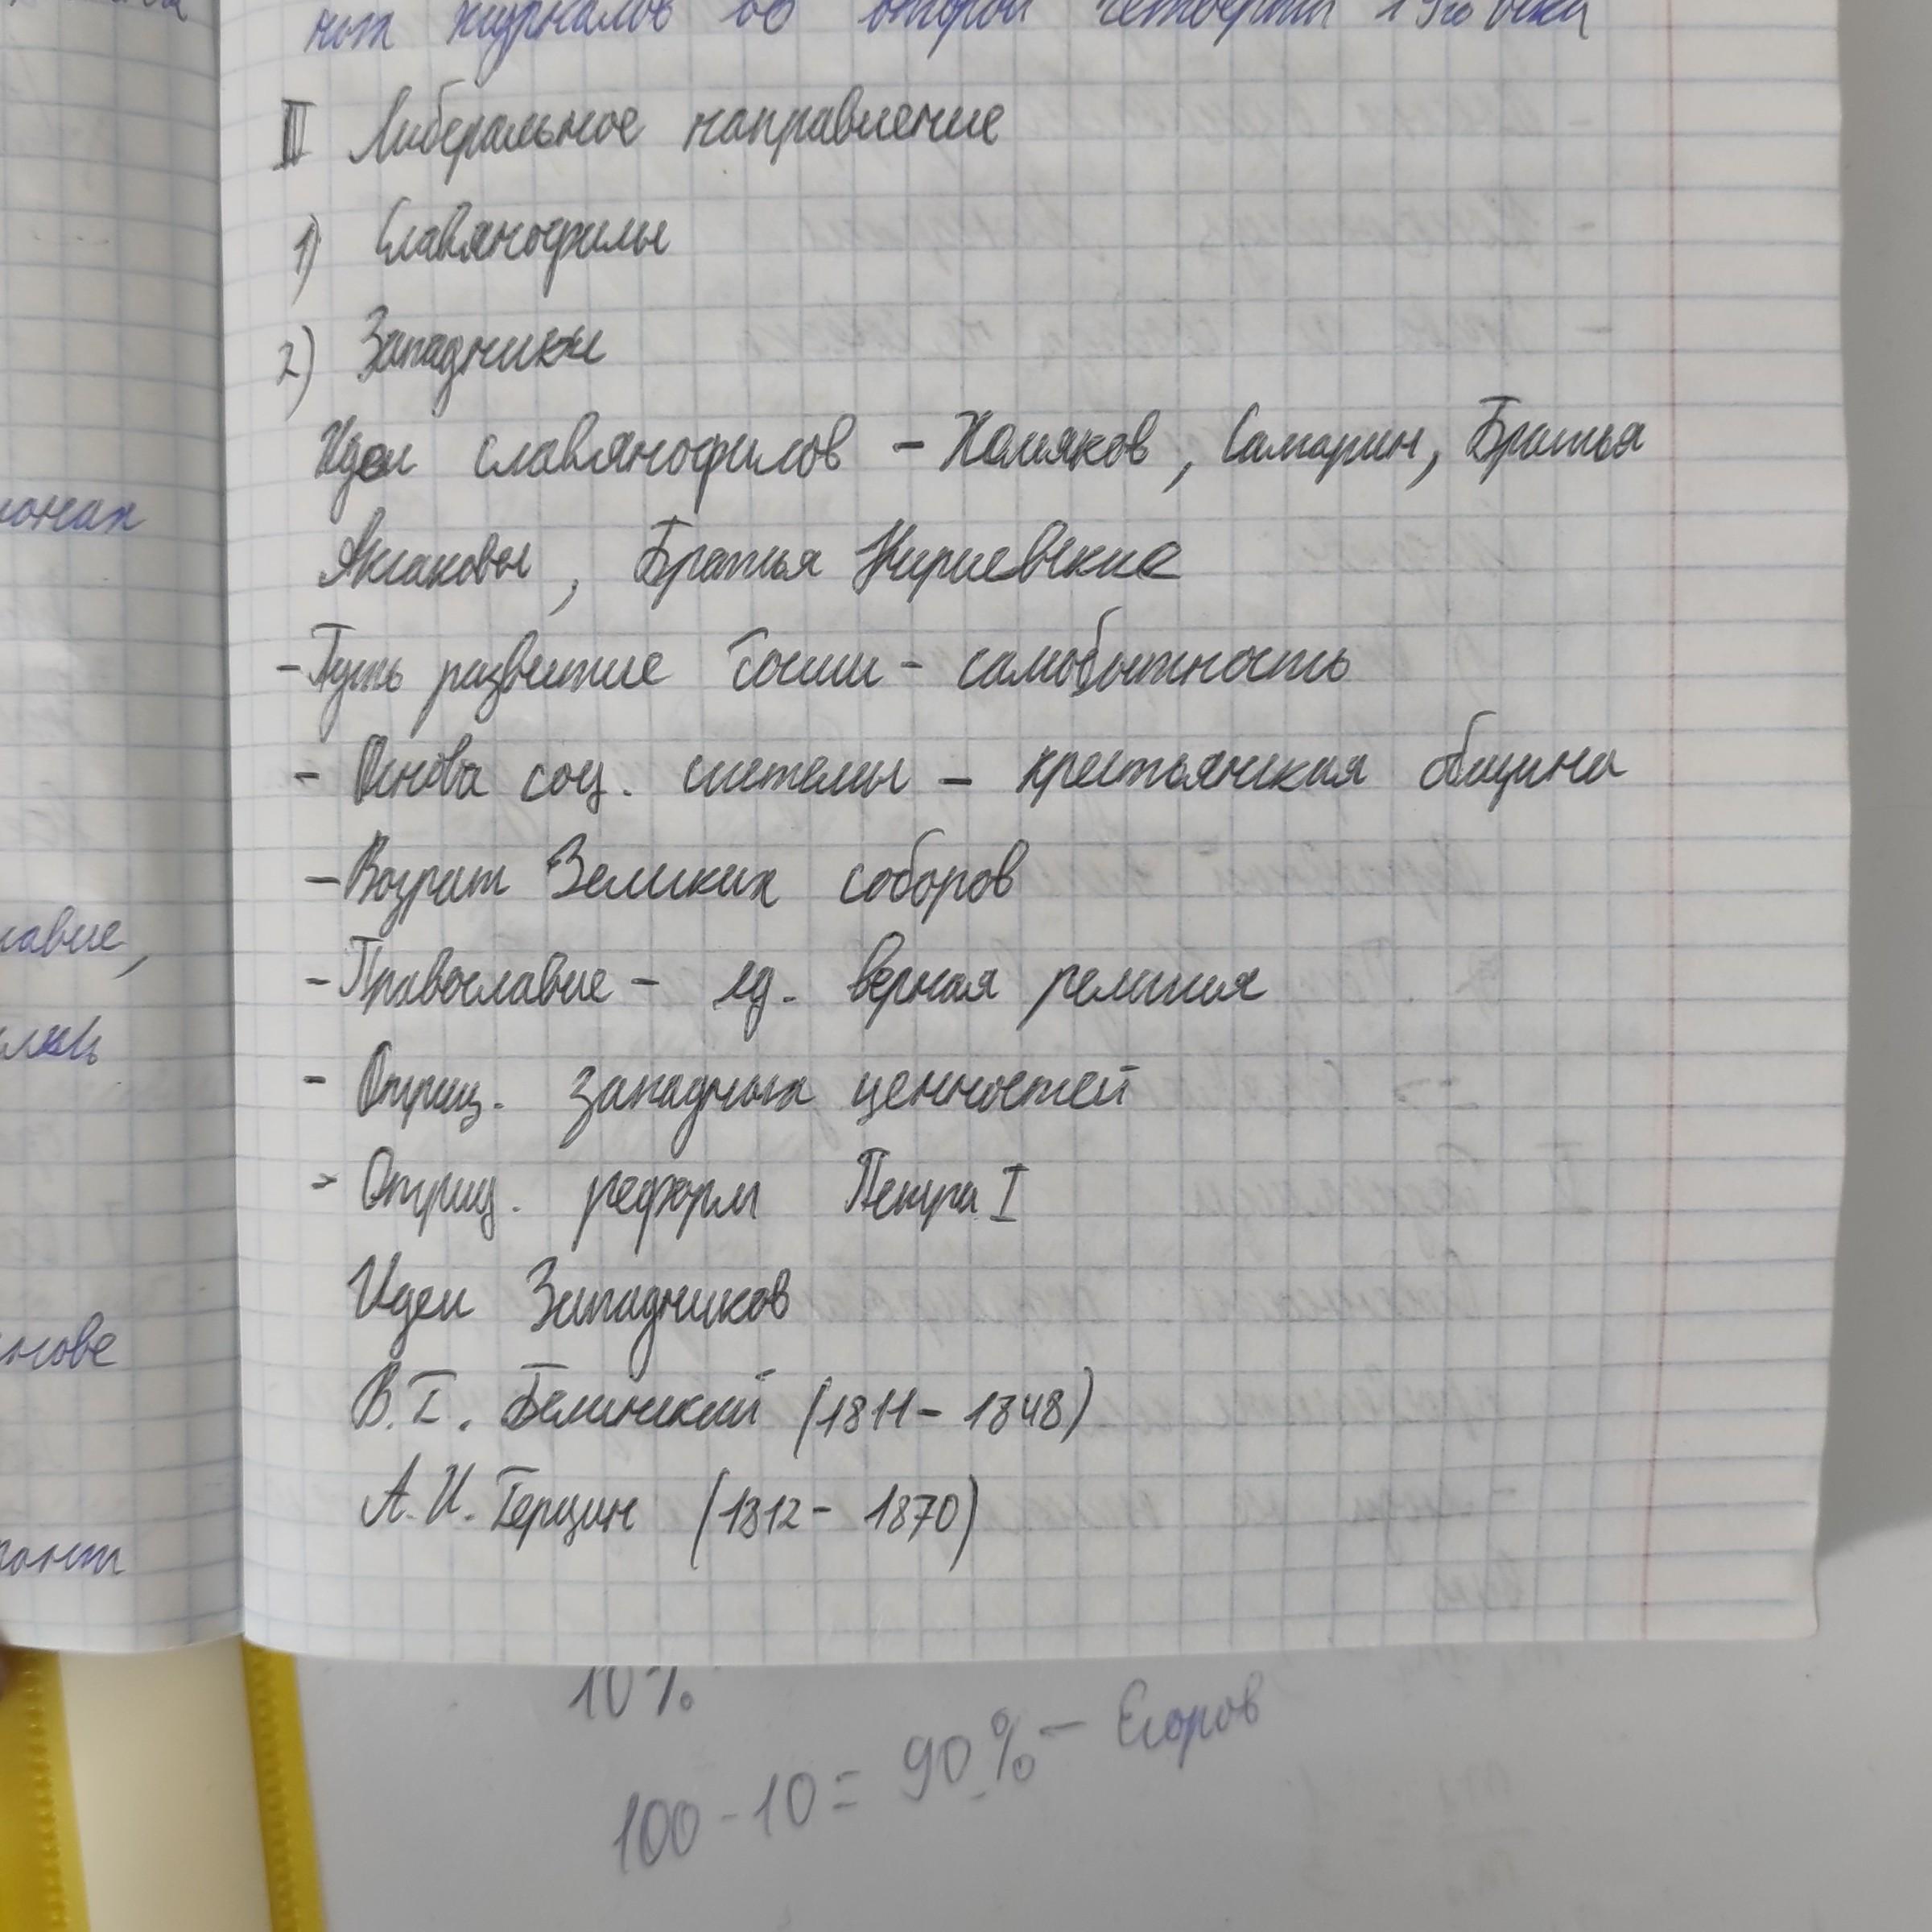 ных журналов во второй четверти 19го века
II Либеральное направление
1) Славянофилы
2) Западники
Идеи славянофилов - Хомяков, Самарин, Братья
Аксаковы, Братья Кириевские
- Путь развитие - самобытность
- Основа соц. системы - крестьянская община
- Возрат Земских соборов
- Православие - ед. верная религия
- Отриц. западных ценностей
- Отриц. реформ Петра I
Идеи Западников
В.Г. Белинский (1811 - 1848)
А.И. Герцин (1812 - 1870)
онах
лавие,
нове
10%
100 - 10 = 90% - Егоров